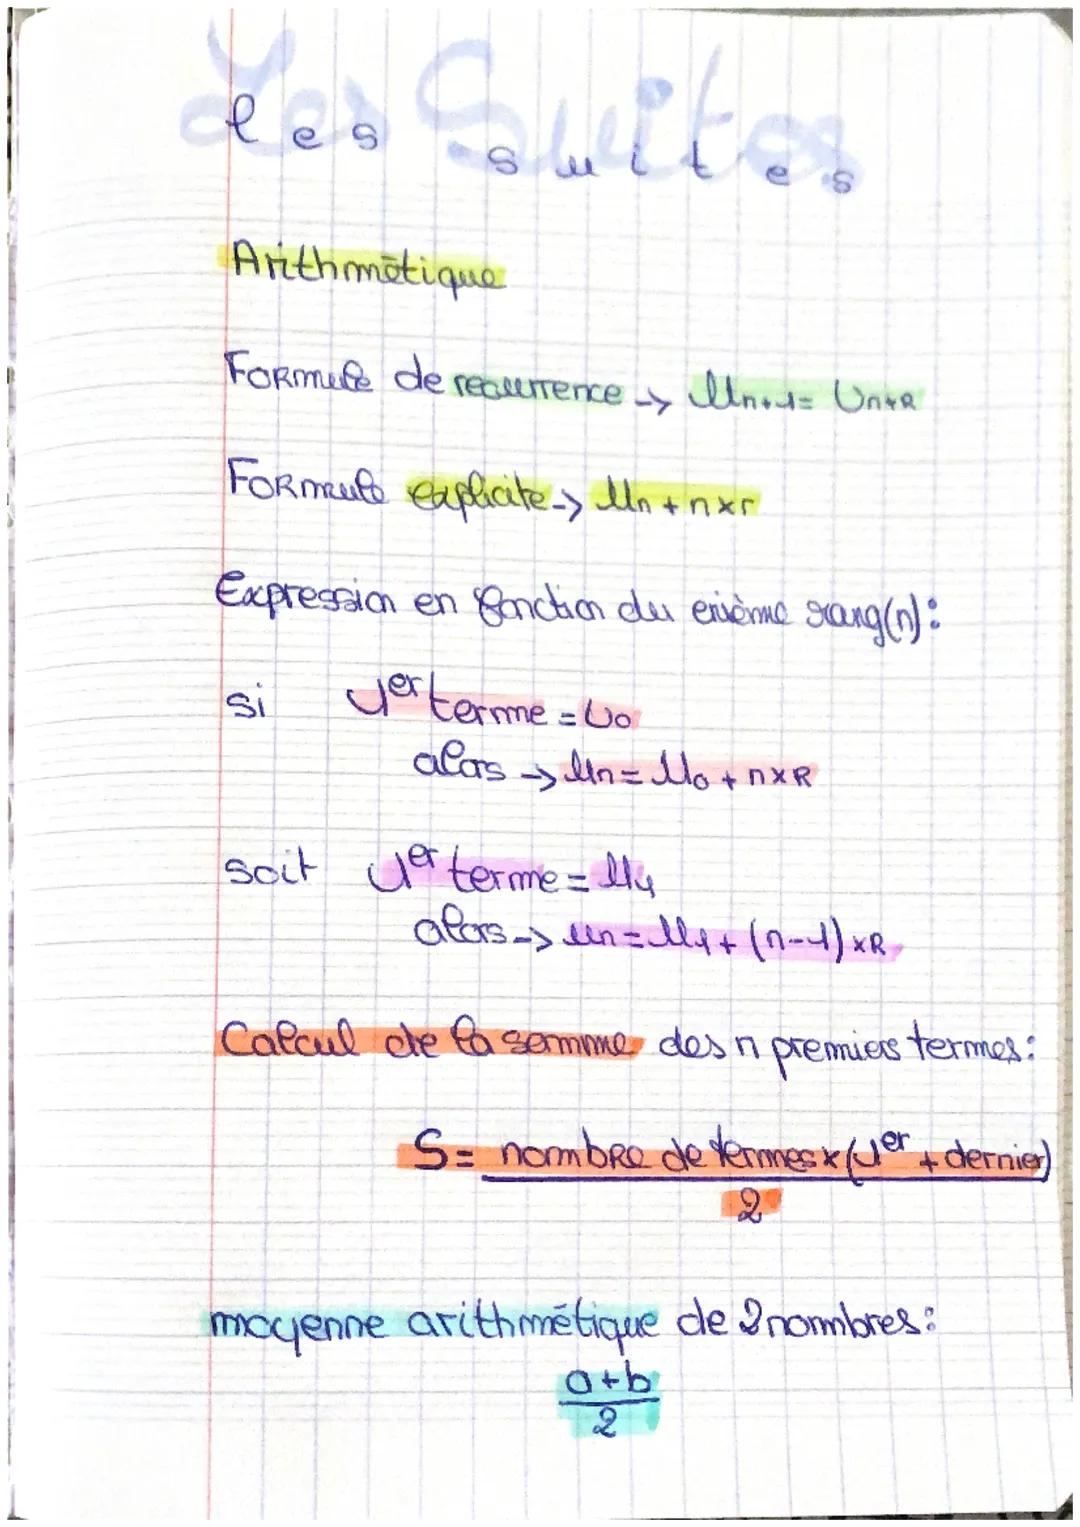 Les Suites
les suites
Arithmétique
Formule de recurrence -> Un+1 = Un+R
Formule explicite -> Un + n×r
Expression en fonction du enième rang(n):
si 1er terme = U0
alors -> Un = U0 + n×R
soit 1er terme = U1
alors -> un = U1 + (n-1)×R
Calcul de la somme des n premiers termes:
S = nombre de termes × (1er + dernier)
2
moyenne arithmétique de 2 nombres:
a+b
2